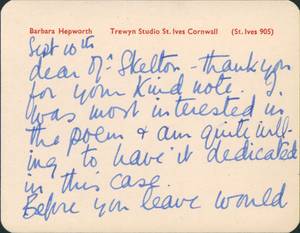 Barbara Hepworth Trewyn Studio St. Ives Cornwall (St. Ives 905)
Sept 10th
dear Mr Skelton - thank you
for your kind note. I
was most interested in
the poem & am quite will-
ing to have it dedicated
in this case.
Before you leave would